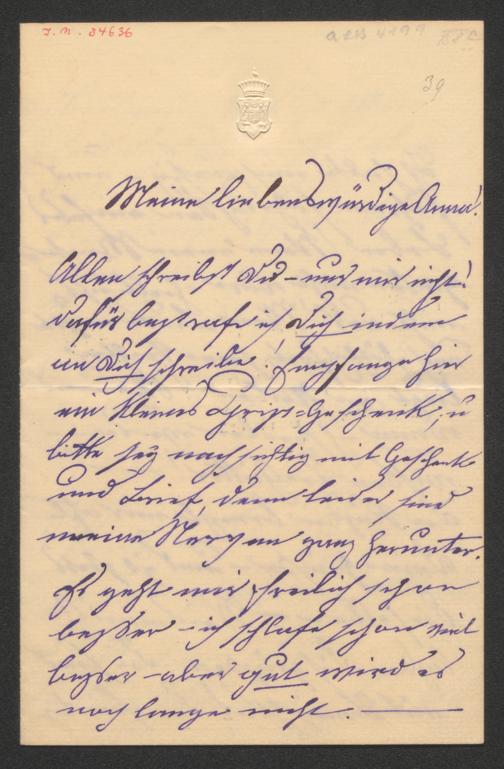 J.N. 84636
39
Meine liebenswürdige Anna!
Allen schreibst Du – nur mir nicht!
dafür bestrafe ich Dich indem
an Dich schreibe! Empfange hier
ein kleines Christ=Geschenk, u
bitte sey nachsichtig mit Geschenk
und Brief, denn leider sind
meine Nerven ganz herunter.
Es geht mir freilich schon
besser – ich schlafe schon viel
besser – aber gut wird es
noch lange nicht. —